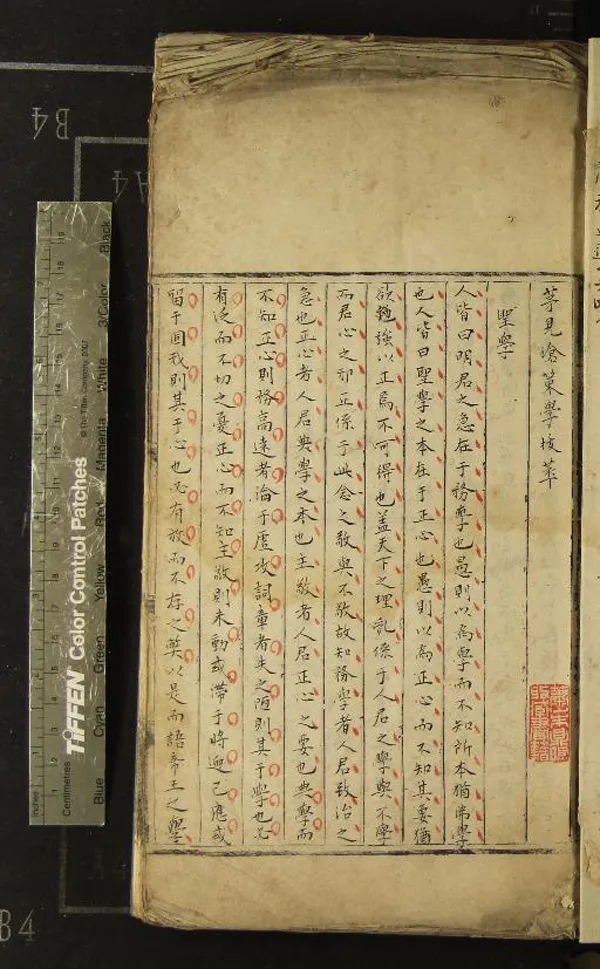 茅見滄策學拔萃
聖學
人皆曰明君之急在于務學也愚則以為學而不知所本猶弗學
也人皆曰聖學之本在于正心也愚則以為正心而不知其要猶
欲勉強以正焉不可得也盖天下之理亂係于人君之學與不學
而君心之邪正係于此念之敬與不敬故知務學者人君致治之
急也正心者人君典學之本也主敬者人君正心之要也典學而
不知正心則務高遠者淪于虛攻詞章者失之陋則其于學也必
有泛而不切之憂正心而不知主敬則未動或滯于將迎已應或
留于固我則其于心也必有放而不存之弊以是而語帝王之學
B4
A4
B4
Inches
Centimetres
TIFFEN Color Control Patches
© The Tiffen Company, 2007
Blue Cyan Green Yellow Red Magenta White 3/Color Black